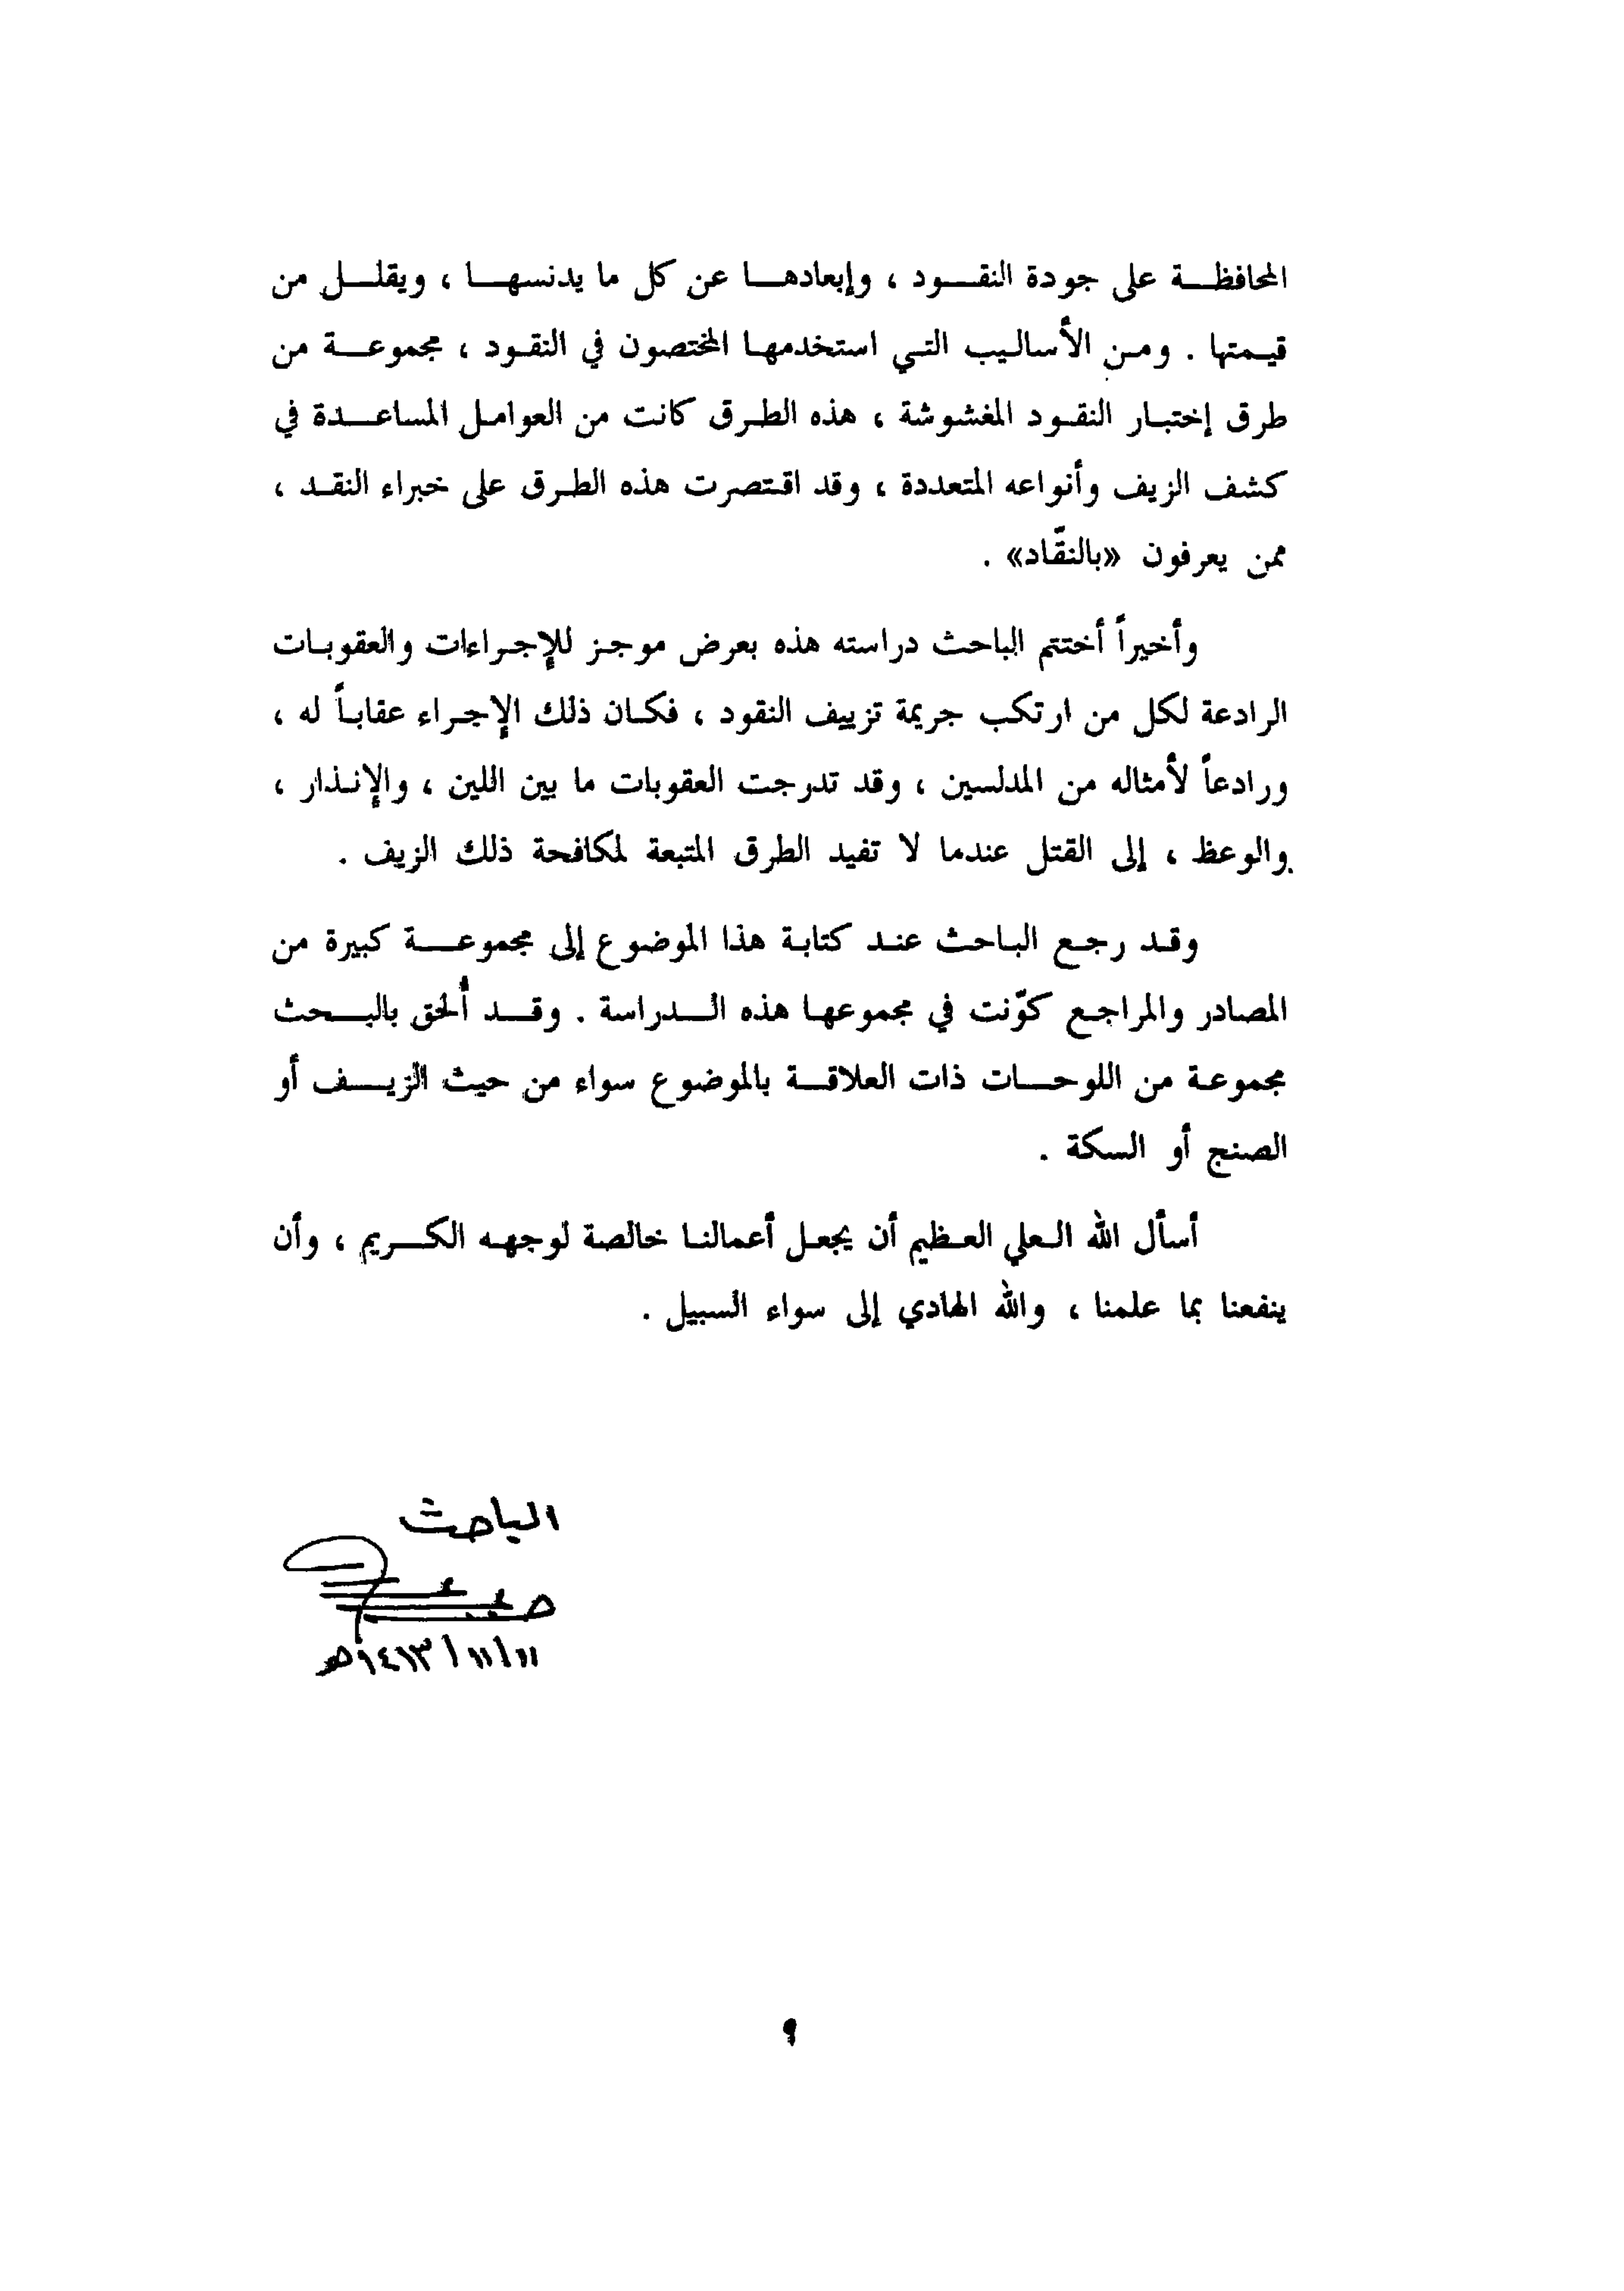 المحافظة على جودة النقود ، وإبعادها عن كل ما يدنسها ، ويقلل من
قيمتها . ومن الأساليب التي استخدمها المختصون في النقود ، مجموعة من
طرق إختبار النقود المغشوشة ، هذه الطرق كانت من العوامل المساعدة في
كشف الزيف وأنواعه المتعددة ، وقد اقتصرت هذه الطرق على خبراء النقد ،
ممن يعرفون «بالنقّاد» .
وأخيراً أختتم الباحث دراسته هذه بعرض موجز للإجراءات والعقوبات
الرادعة لكل من ارتكب جريمة تزييف النقود ، فكان ذلك الإجراء عقاباً له ،
ورادعاً لأمثاله من المدلسين ، وقد تدرجت العقوبات ما بين اللين ، والإنذار ،
والوعظ ، إلى القتل عندما لا تفيد الطرق المتبعة لمكافحة ذلك الزيف .
وقد رجع الباحث عند كتابة هذا الموضوع إلى مجموعة كبيرة من
المصادر والمراجع كوّنت في مجموعها هذه الدراسة . وقد أُلحق بالبحث
مجموعة من اللوحات ذات العلاقة بالموضوع سواء من حيث الزيف أو
الصنج أو السكة .
أسأل الله العلي العظيم أن يجعل أعمالنا خالصة لوجهه الكريم ، وأن
ينفعنا بما علمنا ، والله الهادي إلى سواء السبيل .
الباحث
١١/١١/١٤١٣هـ
٩